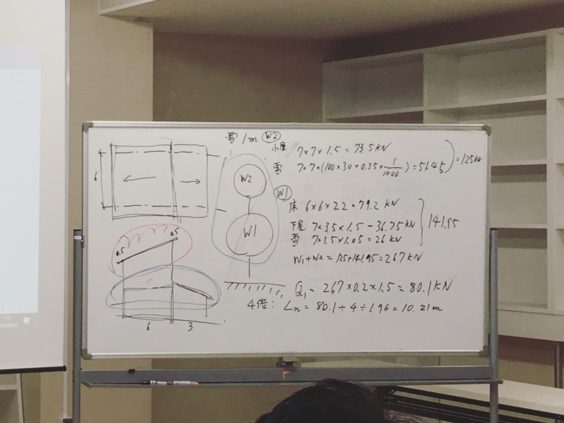 雪 1m W2
小屋 7×7×1.5=73.5KN
雪 7×7×(100×30×0.35×1/1000)=51.45
=125KN
W2
W1
W1
床 6×6×2.2=79.2KN
下屋 7×3.5×1.5=36.75KN
雪 7×3.5×1.05=26KN
141.95
W1+W2=125+141.95=267KN
Q1=267×0.2×1.5=80.1KN
4倍: Ln=80.1÷4÷1.96=10.21m
6
0.5
0.5
6
3